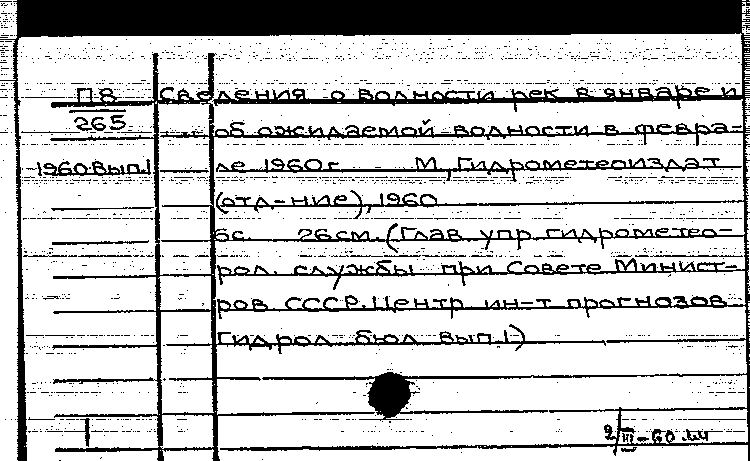 П8 Сведения о водности рек в январе и
265 об ожидаемой водности в февра-
1960 вып.1 ле 1960 г. - М., Гидрометеоиздат
(отд-ние), 1960
6с. 26см. (Глав. упр. гидрометео-
рол. службы при Совете Минист-
ров СССР. Центр. ин-т прогнозов
Гидрол. бюл. вып. 1)
2/III-60